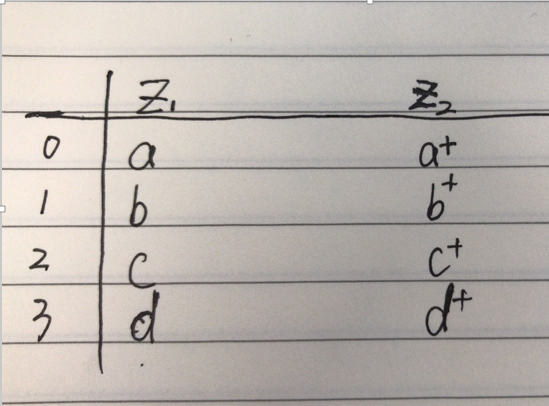 Z₁ Z₂
0 a a⁺
1 b b⁺
2 c c⁺
3 d d⁺